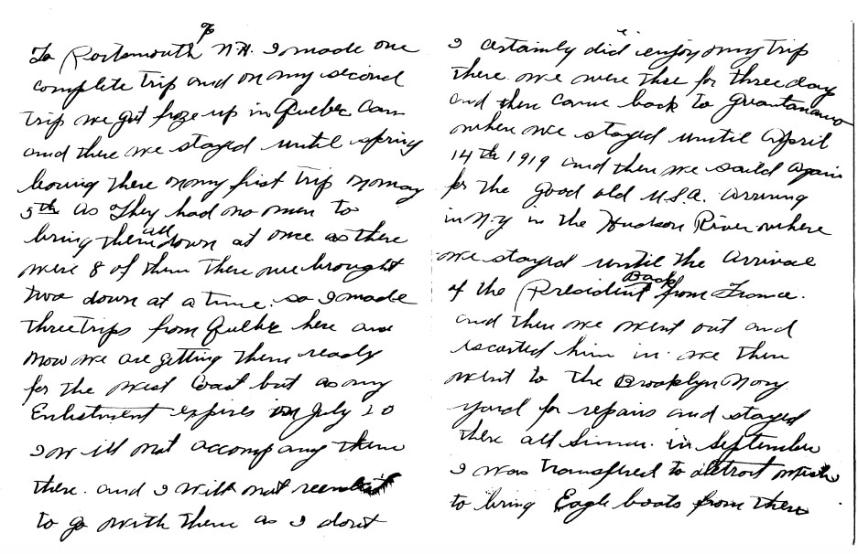 To Portsmouth N.H. I made one
complete trip and on my second
trip we got froze up in Quebec Can
and there we stayed until spring
leaving there on my first trip on may
5th as They had no men to
bring them all down at once as there
were 8 of them there we brought
two down at a time. so I made
three trips from Quebec here and
now we are getting them ready
for the west Coast but as my
Enlistment expires on July 20
I will not accompany them
there. and I will not reenlist
to go with them as I dont
I certainly did enjoy my trip
there. we were thre for three day
and then came back to Guantanamo
where we stayed until April
14th 1919 and then we saild again
for the good old U.S.A. arriving
in N.Y in the Hudson River where
we stayed until the arrival
of the President Back from France.
and then we went out and
escorted him in. we then
went to the Brooklyn Navy
yard for repairs and stayed
there all Summer. in September
I was transfered to detroit
to bring Eagle boats from there